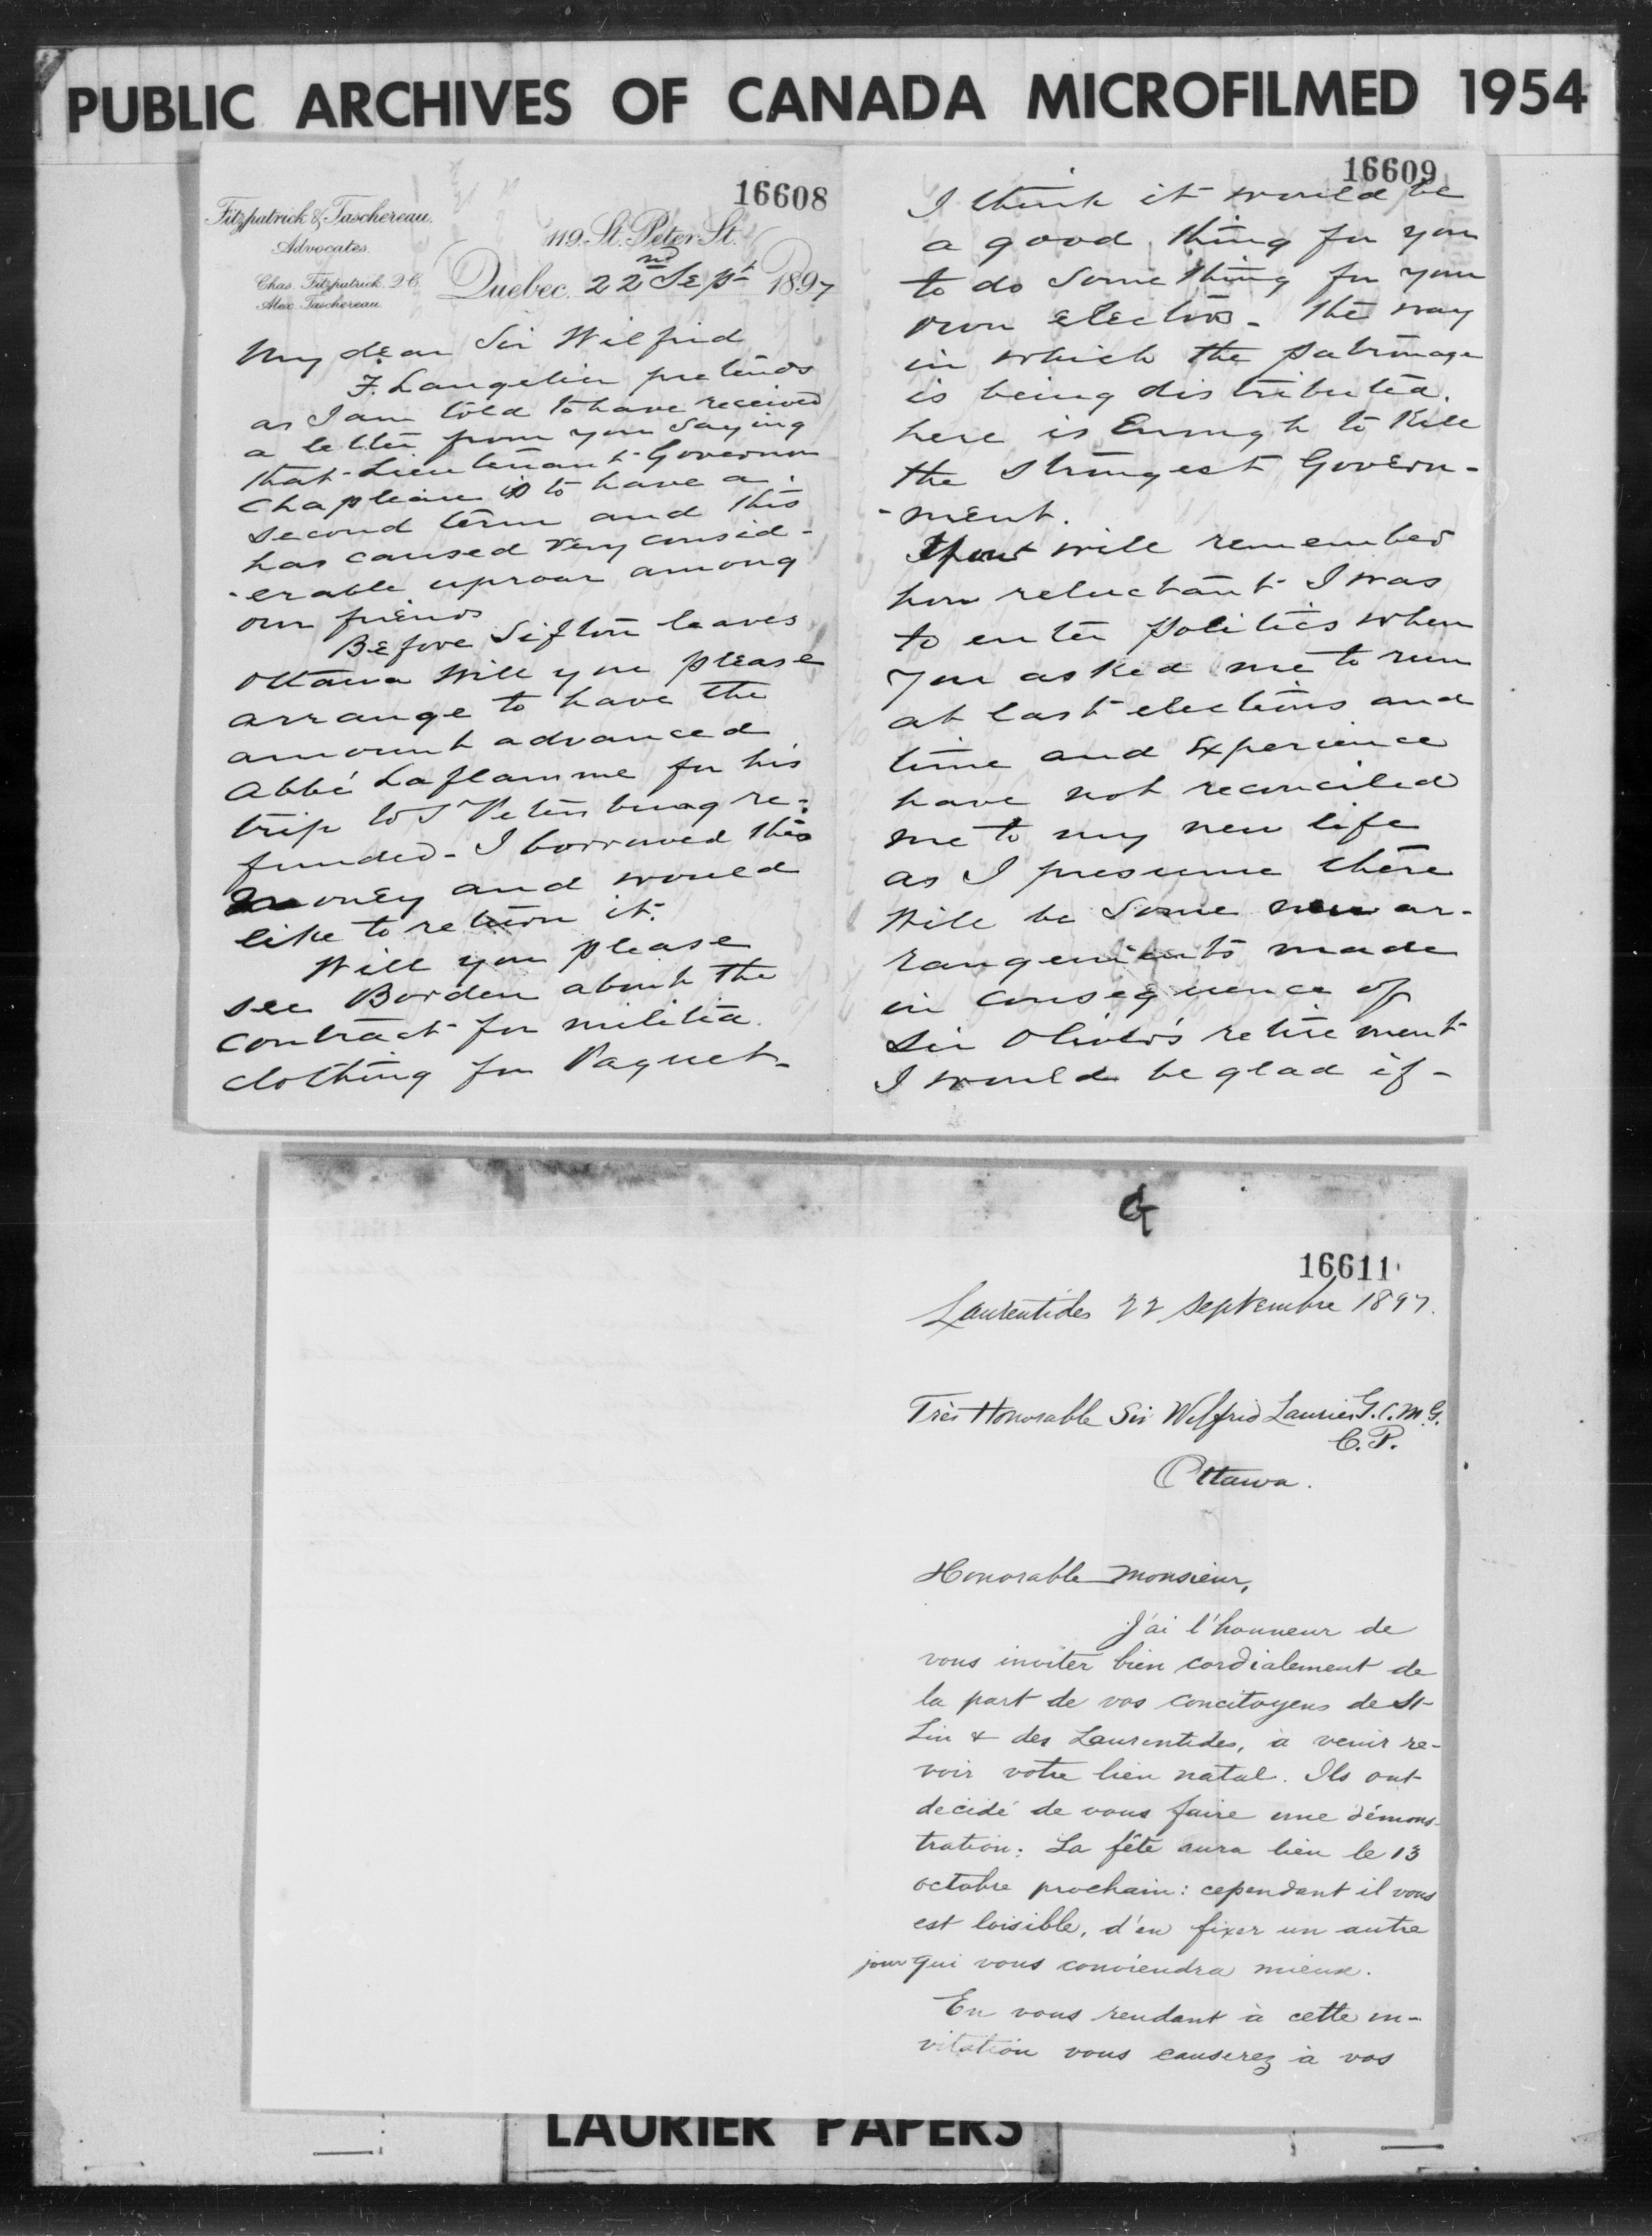 PUBLIC ARCHIVES OF CANADA MICROFILMED 1954
16608
Fitzpatrick & Taschereau.
Advocates.
Chas. Fitzpatrick. Q.C.
Alex. Taschereau.
119. St. Peter St.
Quebec. 22nd Sept 1897
My dear Sir Wilfrid
F. Langelier pretends
as I am told to have received
a letter from you saying
that Lieutenant-Governor
Chapleau is to have a
second term and this
has caused very consid-
-erable uproar among
our friends
Before Sifton leaves
Ottawa will you please
arrange to have the
amount advanced
Abbé Laflamme for his
trip to St Petersburg re-
funded - I borrowed this
money and would
like to return it.
Will you please
see Borden about the
contract for militia
clothing for Paquet -
16609
I think it would be
a good thing for you
to do something for your
own electors - the way
in which the patronage
is being distributed
here is enough to kill
the strongest Govern-
-ment.
You will remember
how reluctant I was
to enter politics when
you asked me to run
at last elections and
time and experience
have not reconciled
me to my new life
as I presume there
will be some new ar-
rangements made
in consequence of
Sir Oliver's retirement
I would be glad if -
G
16611
Laurentides 22 septembre 1897.
Très Honorable Sir Wilfrid Laurier G.C.M.G.
C.P.
Ottawa.
Honorable Monsieur,
J'ai l'honneur de
vous inviter bien cordialement de
la part de vos concitoyens de St-
Lin & des Laurentides, à venir re-
voir votre lieu natal. Ils ont
decidé de vous faire une démons-
tration. La fête aura lieu le 13
octobre prochain: cependant il vous
est loisible, d'en fixer un autre
jour qui vous conviendra mieux.
En vous rendant à cette in-
vitation vous causerez à vos
LAURIER PAPERS